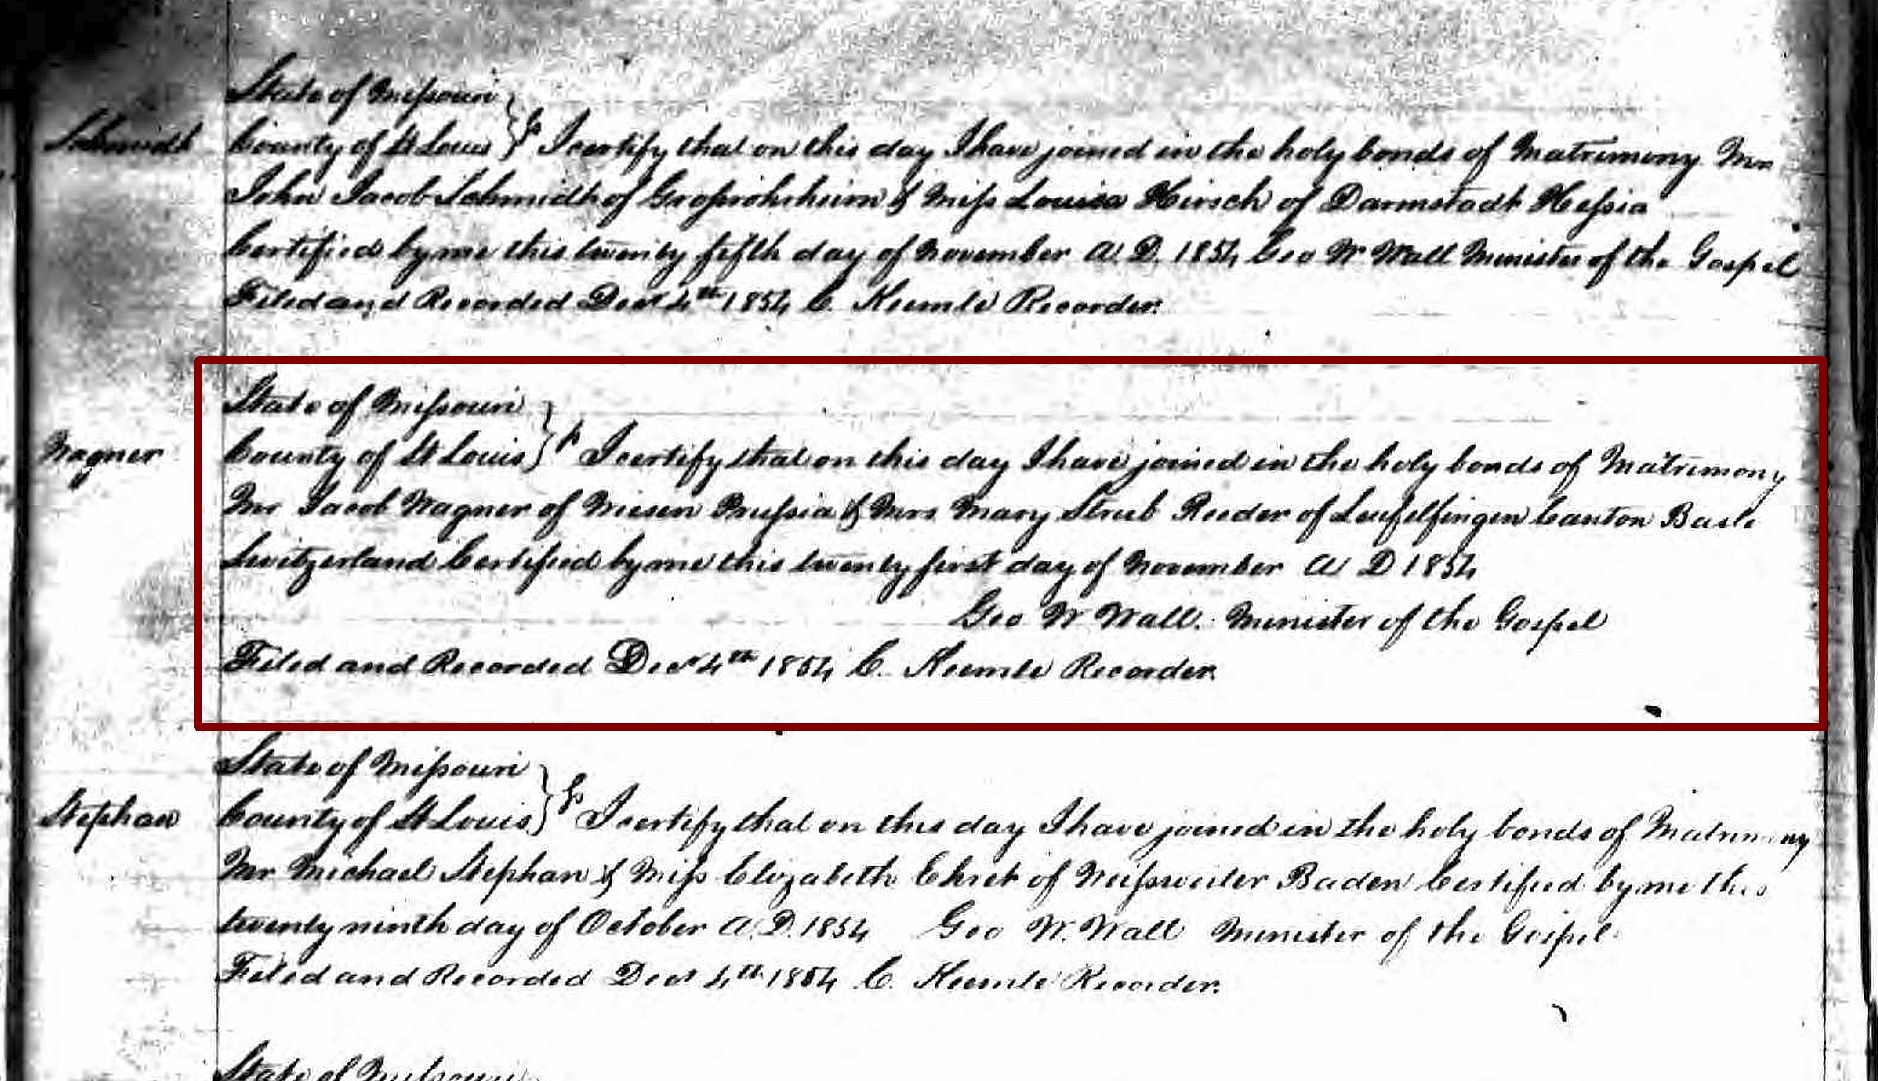 State of Missouri
Schmidt County of St Louis } ss I certify that on this day I have joined in the holy bonds of Matrimony Mr
John Jacob Schmidt of Grossrohrheim & Miss Louisa Hirsch of Darmstadt Hessia
Certified by me this twenty fifth day of November A. D. 1854 Geo W Wall Minister of the Gospel
Filed and Recorded Decr 4th 1854 C. Keemle Recorder.
State of Missouri
Wagner County of St Louis } ss I certify that on this day I have joined in the holy bonds of Matrimony
Mr Jacob Wagner of Prussia & Mrs Mary Strub Reeder of Leufelfingen Canton Basle
Switzerland Certified by me this twenty first day of November A D 1854
Geo W Wall. Minister of the Gospel
Filed and Recorded Decr 4th 1854 C. Keemle Recorder.
State of Missouri
Stephan County of St Louis } ss I certify that on this day I have joined in the holy bonds of Matrimony
Mr Michael Stephan & Miss Elizabeth Ehret of Baden Certified by me this
twenty ninth day of October A. D. 1854 Geo W. Wall Minister of the Gospel
Filed and Recorded Decr 4th 1854 C. Keemle Recorder.
State of Missouri